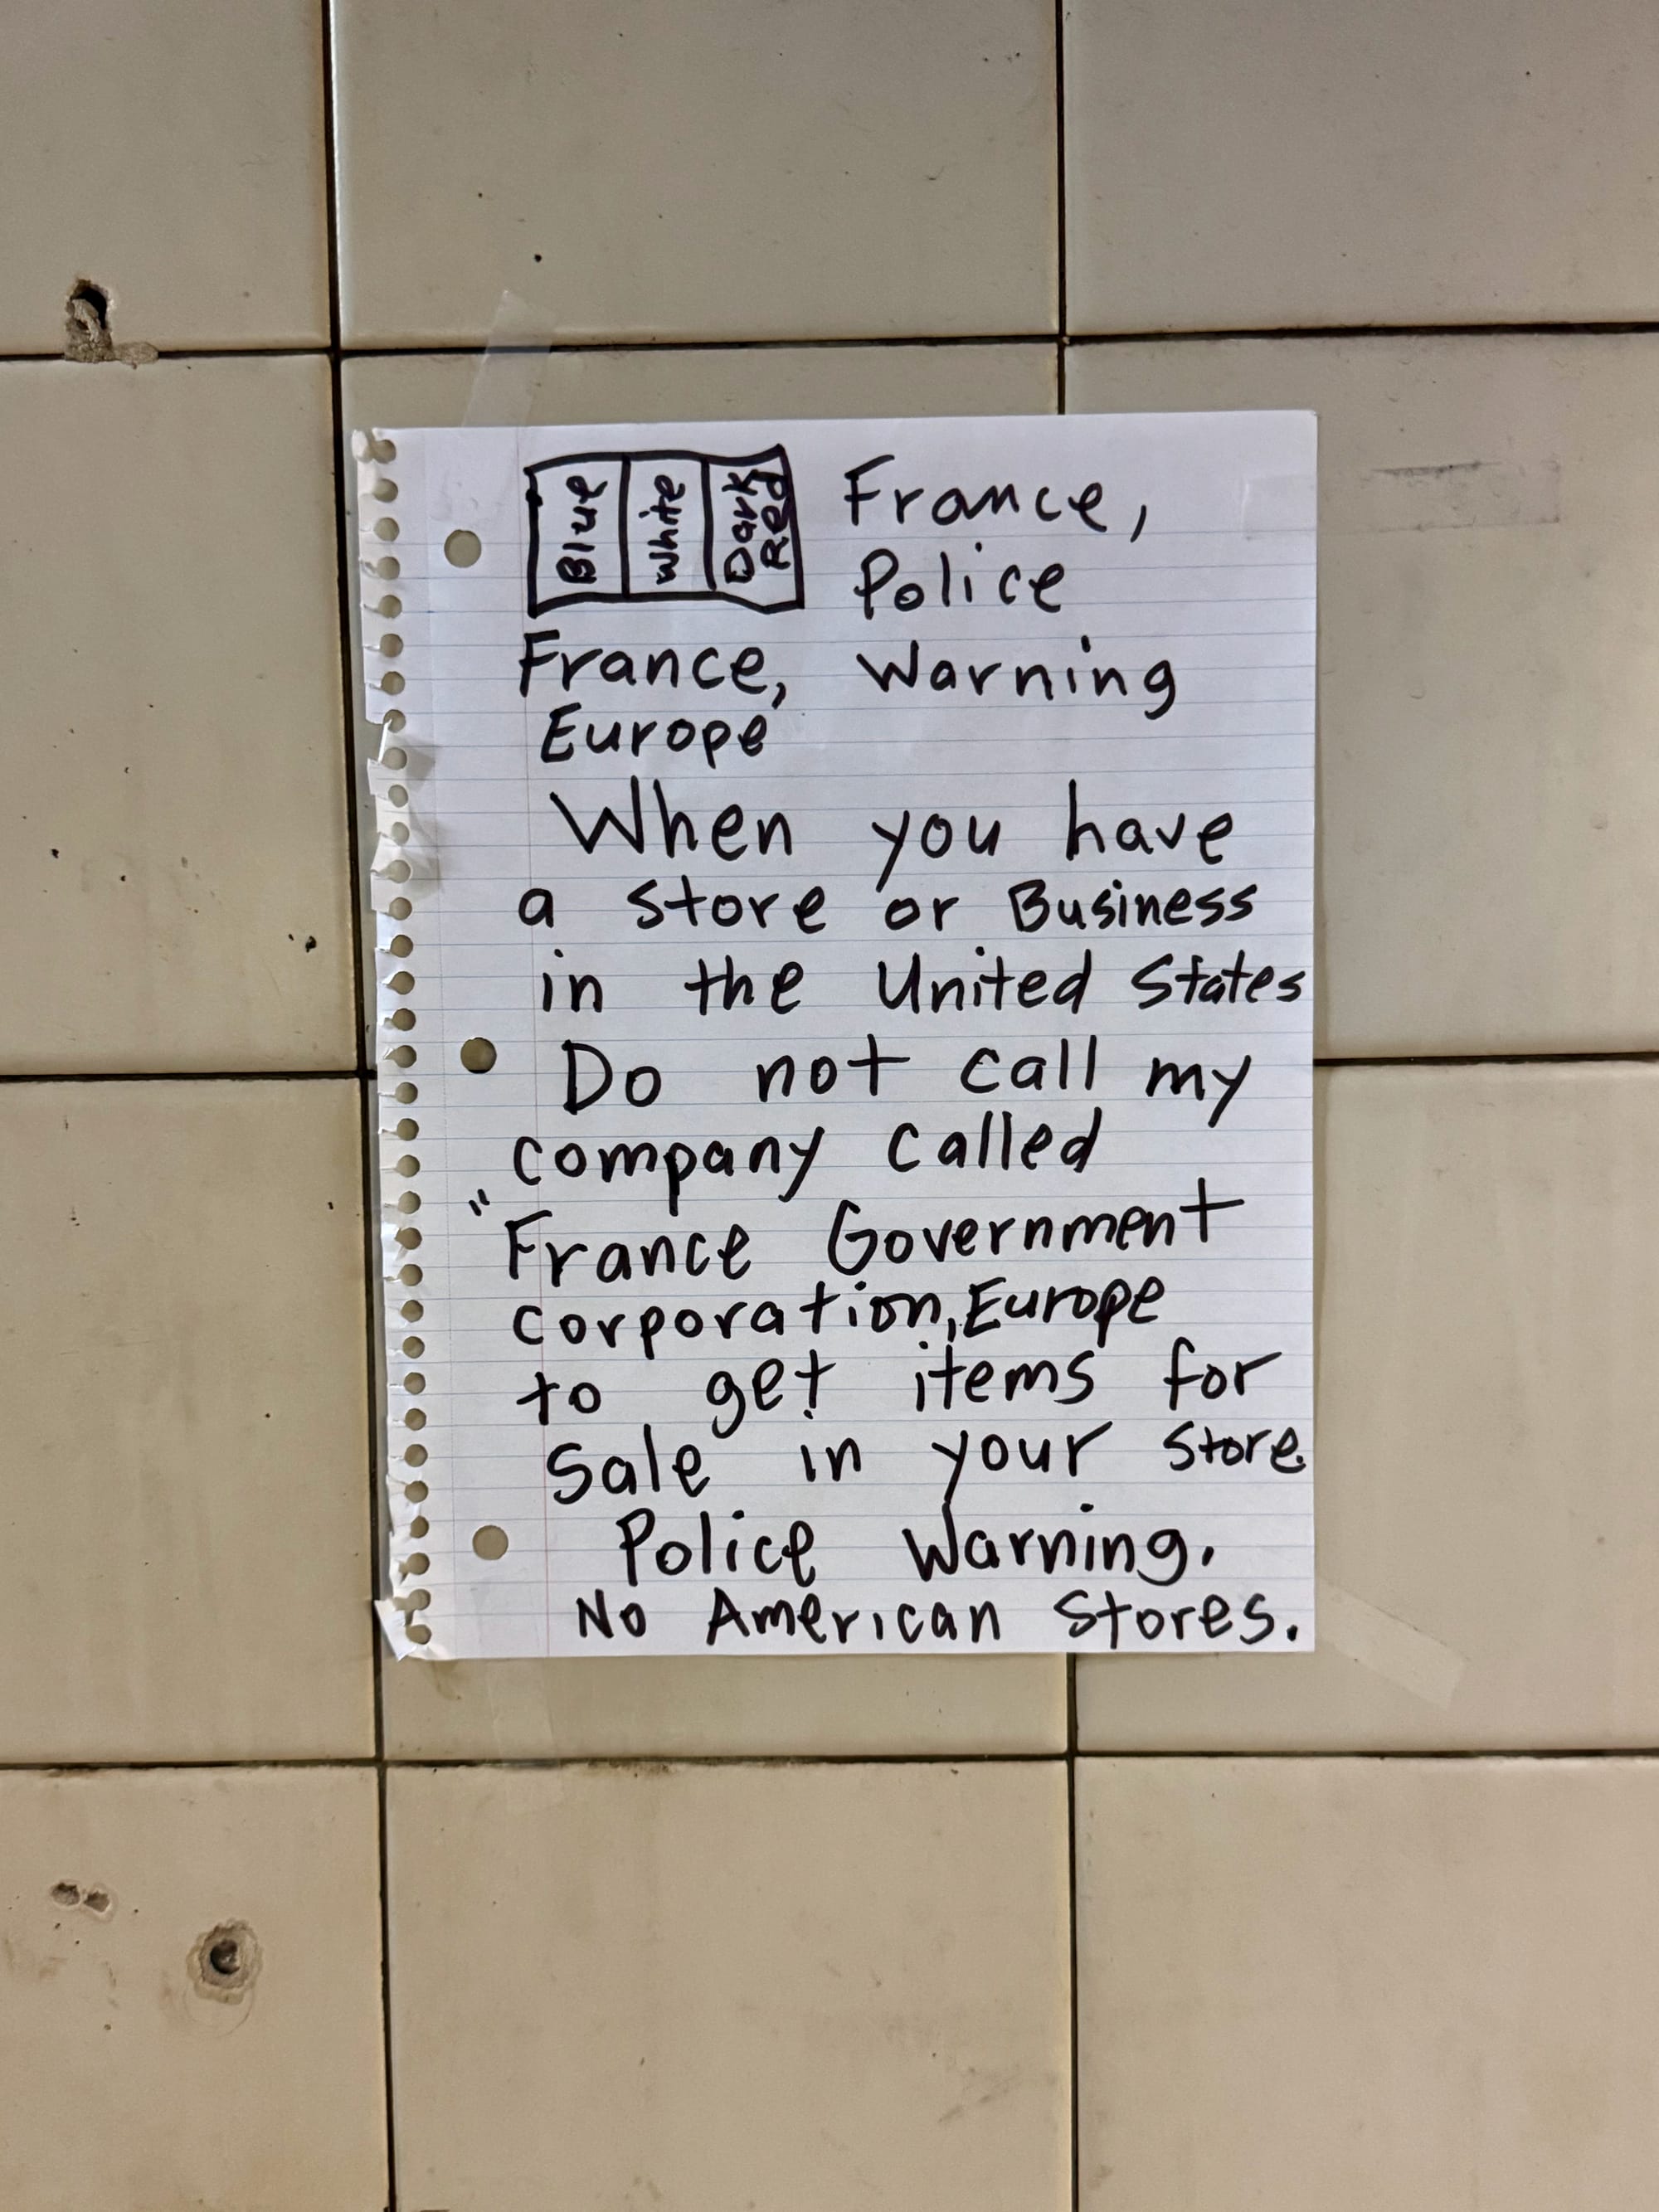 Blue
White
Dark
Red
France,
Police
France, Warning
Europe
When you have
a store or Business
in the United States
Do not call my
company called
"France Government
corporation, Europe
to get items for
Sale in your store.
Police Warning.
No American Stores.